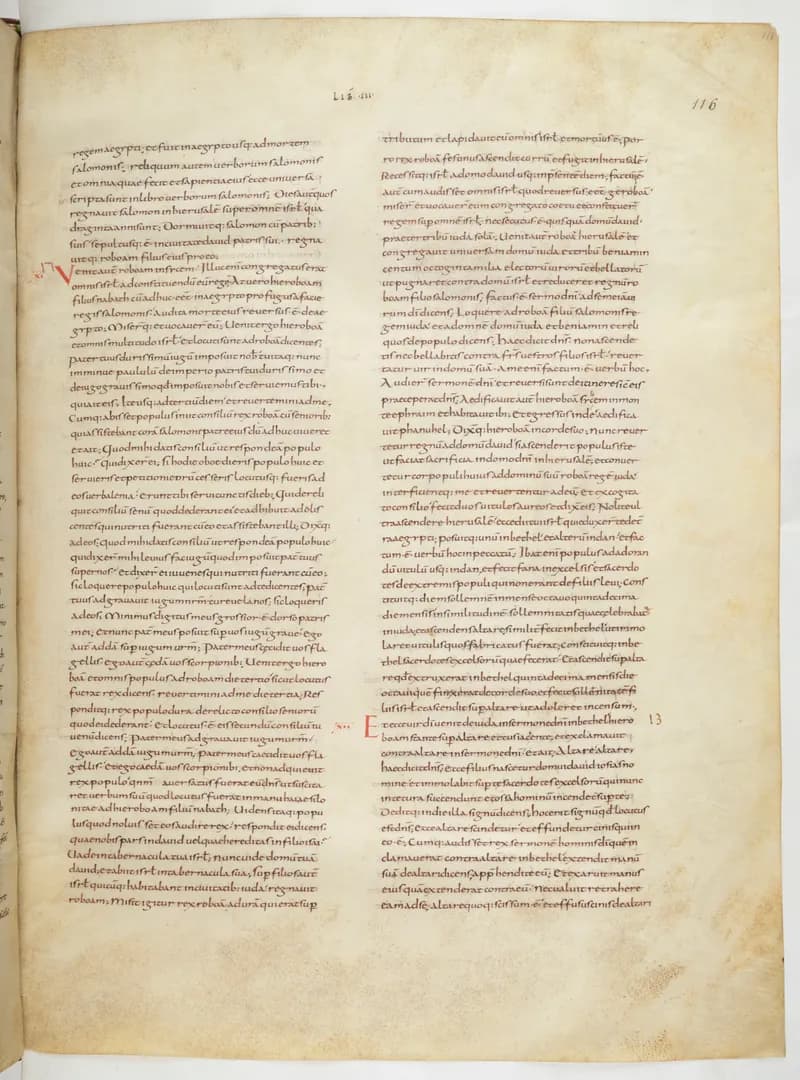 Lib. III.
116
regem aegypti; et fuit in aegypto usq; ad mortem
salomonis; reliquum autem uerborum salomonis
et omnia quae fecit et sapientia eius ecce uniuersa
scripta sunt in libro uerborum salomonis; Dies aut quos
regnauit salomon in hierusalē super omnē isrł qua
draginta anni sunt; Dormiuitq; salomon cū patrib;
suis sepultusq; ē in ciuitate dauid patris sui. regna
uitq; roboam filius eius pro eo;
Venit aut roboam in sichem; Illuc enī congregatus erat
omnis isrł ad constituendū eū regē At uero hieroboam
filius nabath cū adhuc eēt in aegypto profugus a facie
regis salomonis. audita morte eius reuersus ē de ae
gypto; Miser q; et uocauer eū; Uenit ergo hieroboā
et omnis multitudo isrł et locuti sunt ad roboā dicentes;
Pater tuus durissimū iugū imposuit nob tu itaq; nunc
imminue paululū de imperio patris tui durissimo et
de iugo grauissimo qđ imposuit nobis et seruiemus tibi.
qui ait eis; Ite usq; ad tertiū diem et reuertemini ad me.
Cumq; abisset populus iniit consiliū rex roboā cū seniorib;
qui assistebant corā salomon patre eius dū adhuc uiueret
et ait; Quod mihi datis consiliū ut respondeā populo
huic. Qui dixer ei; si hodie oboedieris populo huic et
seruieris et petitioni eorū cesseris locutusq; fueris ad
eos uerba lenia. erunt tibi serui cunctis dieb; Qui dereli
quit consiliū senū quod dederant ei et adhibuit adoles
centes qui nutriti fuerant cū eo et assistebant illi; Dixitq;
ad eos; quod mihi datis consiliū ut respondeā populo huic.
qui dixer mihi leuius fac iugū quod imposuit pat tuus
super nos. Et dixer ei iuuenes qui nutriti fuerant cū eo;
sic loquere populo huic qui locuti sunt ad te dicentes; pat
tuus adgrauauit iugum nrm tu releua nos; sic loqueris
ad eos; Minimus digitus meus grossior ē dorso patris
mei; Et nunc pat meus posuit sup uos iugū graue. Ego
aut addā sup iugum urm; Pater meus cecidit uos fla
gellis. ego aut cędā uos scorpionib; Uenit ergo hiero
boā et omnis populus ad roboam die tertio sicut locutus
fuerat rex dicens; reuertimini ad me die tertia; Res
ponditq; rex populo dura. derelicto consilio seniorū
quod ei dederant. Et locutus ē eis secundū consiliū iu
uenū dicens; Pater meus adgrauauit iugum urm;
Ego aut addā iugum urm; pater meus caecidit uos fla
gellis. et ego caedā uos scorpionib; Et non adquieuit
rex populo. qnm auersatus fuerat eū dns ut suscita
ret uerbum suū quod locutus fuerat in manu haiae silo
nitae ad hieroboam filiū nabath; Uidens itaq; popu
lus quod noluisset eos audire rex. respondit ei dicens;
quae nobis pars in dauid uel quae hereditas in filio isai.
Uade in tabernacula tua isrł; nunc uide domū tuā
dauid; et abiit isrł in tabernacula sua; sup filios aut
isrł quicūq; habitabant in ciuitatib; iuda. regnauit
roboam; Misit igitur rex roboā adurā qui erat sup
tributum et lapidauit eū omnis isrł et mortuus ē; por
ro rex roboā festinus ascendit currū et fugit in hierusalē.
Recessitq; isrł a domo dauid usq; in p̄sentē diem; factū ē
aut cum audisset omnis isrł quod reuersus eēt geroboā.
miser et uocauer eum congregato coetu et constituer
regem sup omnē isrł nec secutus ē quisquā domū dauid.
praeter tribū iuda solā. Uenit aut roboā hierusalē et
congregauit uniuersam domū iuda et tribū beniamin
centum octoginta milia electorū uirorū et bellatorū
ut pugnaret contra domū isrł et reduceret regnū ro
boam filio salomonis; factus ē sermo dn̄i ad semeiam
rum dī dicens; Loquere ad roboā filiū salomonis re
gem iuda et ad omnē domū iuda et beniamin et reli
quos de populo dicens; Haec dicit dns; non ascende
tis nec bellabitis contra frs uestros filios isrł. reuer
tatur uir in domū suā. a me enī factum ē uerbū hoc.
Audier sermonē dn̄i et reuersi sunt de itinere sic eis
praeceperat dns; Aedificauit aut hieroboā sychem in mon
te ephraim et habitauit ibi; Et egressus inde aedifica
uit phanuhel; Dixitq; hieroboā in corde suo; nunc reuer
tetur regnū ad domū dauid si ascenderit populus iste
ut faciat sacrificia in domo dn̄i in hierusalē; et conuer
tetur cor populi huius ad dominū suū roboā regē iuda.
interficientq; me et reuertentur ad eū; Et excogita
to consilio fecit duos uitulos aureos et dix eis; Nolite ul
tra ascendere hierusalē. ecce dii tui isrł qui eduxer te de tē
ra aegypti; posuitq; unū in bethel et alterū in dan. et fac
tum ē uerbū hoc in peccatū; Ibat enī populus ad adoran
dū uitulū usq; in dan. et fecit fana in excelsis et sacerdo
tes de extremis populi qui non erant de filiis leui; Cons
tituitq; diem sollemnē in mense octauo quintadecima
die mensis in similitudinē sollemnitatis quae celebrabat
in iuda; et ascendens altare similit fecit in bethel ut immo
laret uitulis quos fabricatus fuerat; Constituitq; in be
thel sacerdotes excelsorū quae fecerat. Et ascendit sup alta
re qđ extruxerat in bethel quintadecima mensis die
octaui quē finxerat de corde suo. et fecit sollēnitatē fi
liis isrł et ascendit sup altare ut adoleret incensum;
Et ecce uir dī uenit de iuda in sermone dn̄i in bethel hiero
13
boam stante sup altare et tus iaciente; et exclamauit
contra altare in sermone dn̄i. Et ait; Altare altare;
haec dicit dns; Ecce filius nascetur domui dauid iosias no
mine et immolabit sup te sacerdotes excelsorū qui nunc
in te tura succendunt et ossa hominū incendet sup te;
Deditq; in die illa signū dicens; hoc erit signū qđ locutus
est dns; ecce altare scindetur et effundetur cinis qui in
eo ē; Cumq; audisset rex sermonē hominis dī quem
clamauerat contra altare in bethel extendit manū
suā de altari dicens; app̄hendite eū; Et exaruit manus
eius quā extenderat contra eū; Nec ualuit retrahere
eam ad se; altare quoq; scissum ē et effusus cinis de altari